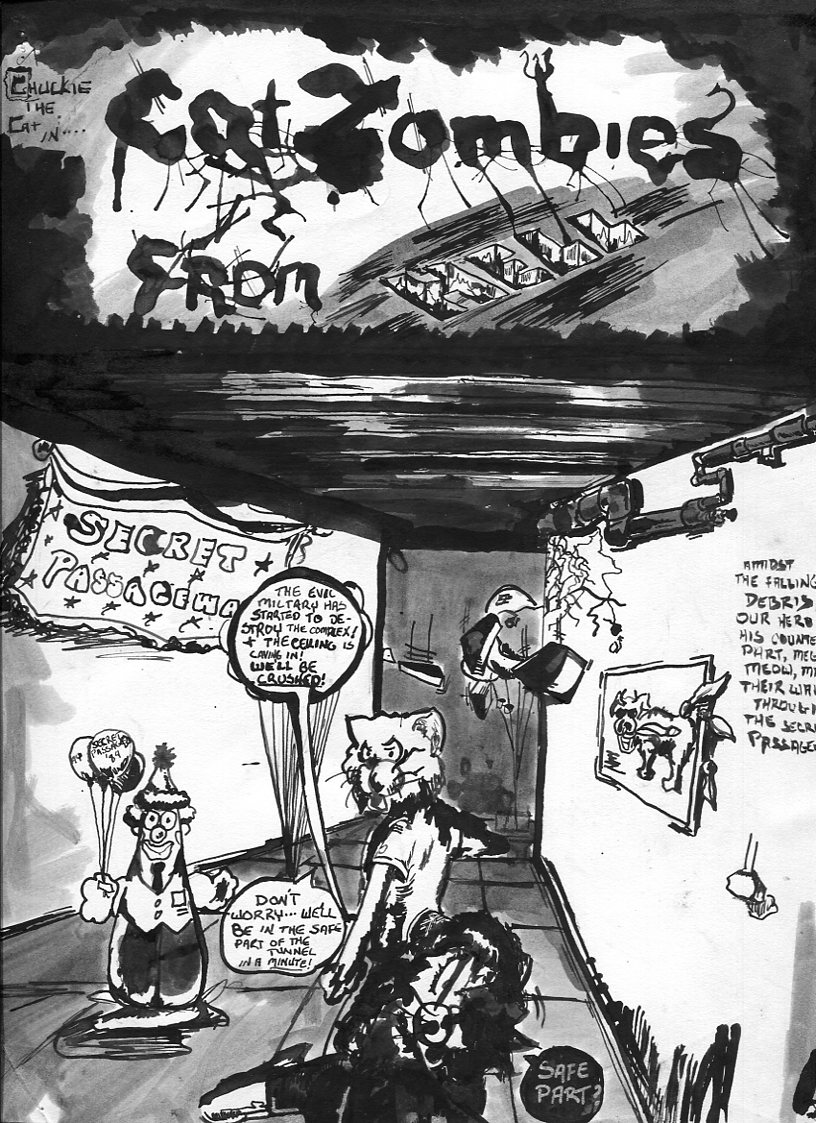 CHUCKIE
THE
CAT
IN....
Cat Zombies
FROM
SECRET
PASSAGEWA
THE EVIL
MILTARY HAS
STARTED TO DE-
STROY THE COMPLEX!
+ THE CEILING IS
CAVING IN!
WE'LL BE
CRUSHED!
AMIDST
THE FALLING
DEBRIS
OUR HERO
HIS COUNTE
PART, MEG
MEOW, M
THEIR WA
THROUG
THE SECR
PASSAGE
SECRET
DON'T
WORRY... WE'LL
BE IN THE SAFE
PART OF THE
TUNNEL
IN A MINUTE!
SAFE
PART?